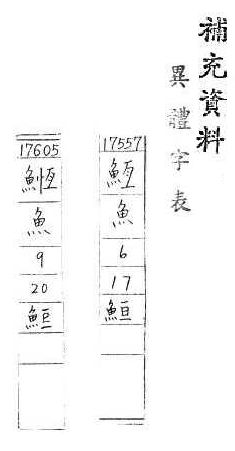 補充資料
異體字表
17557
魚
6
17
17605
䱭
魚
9
20